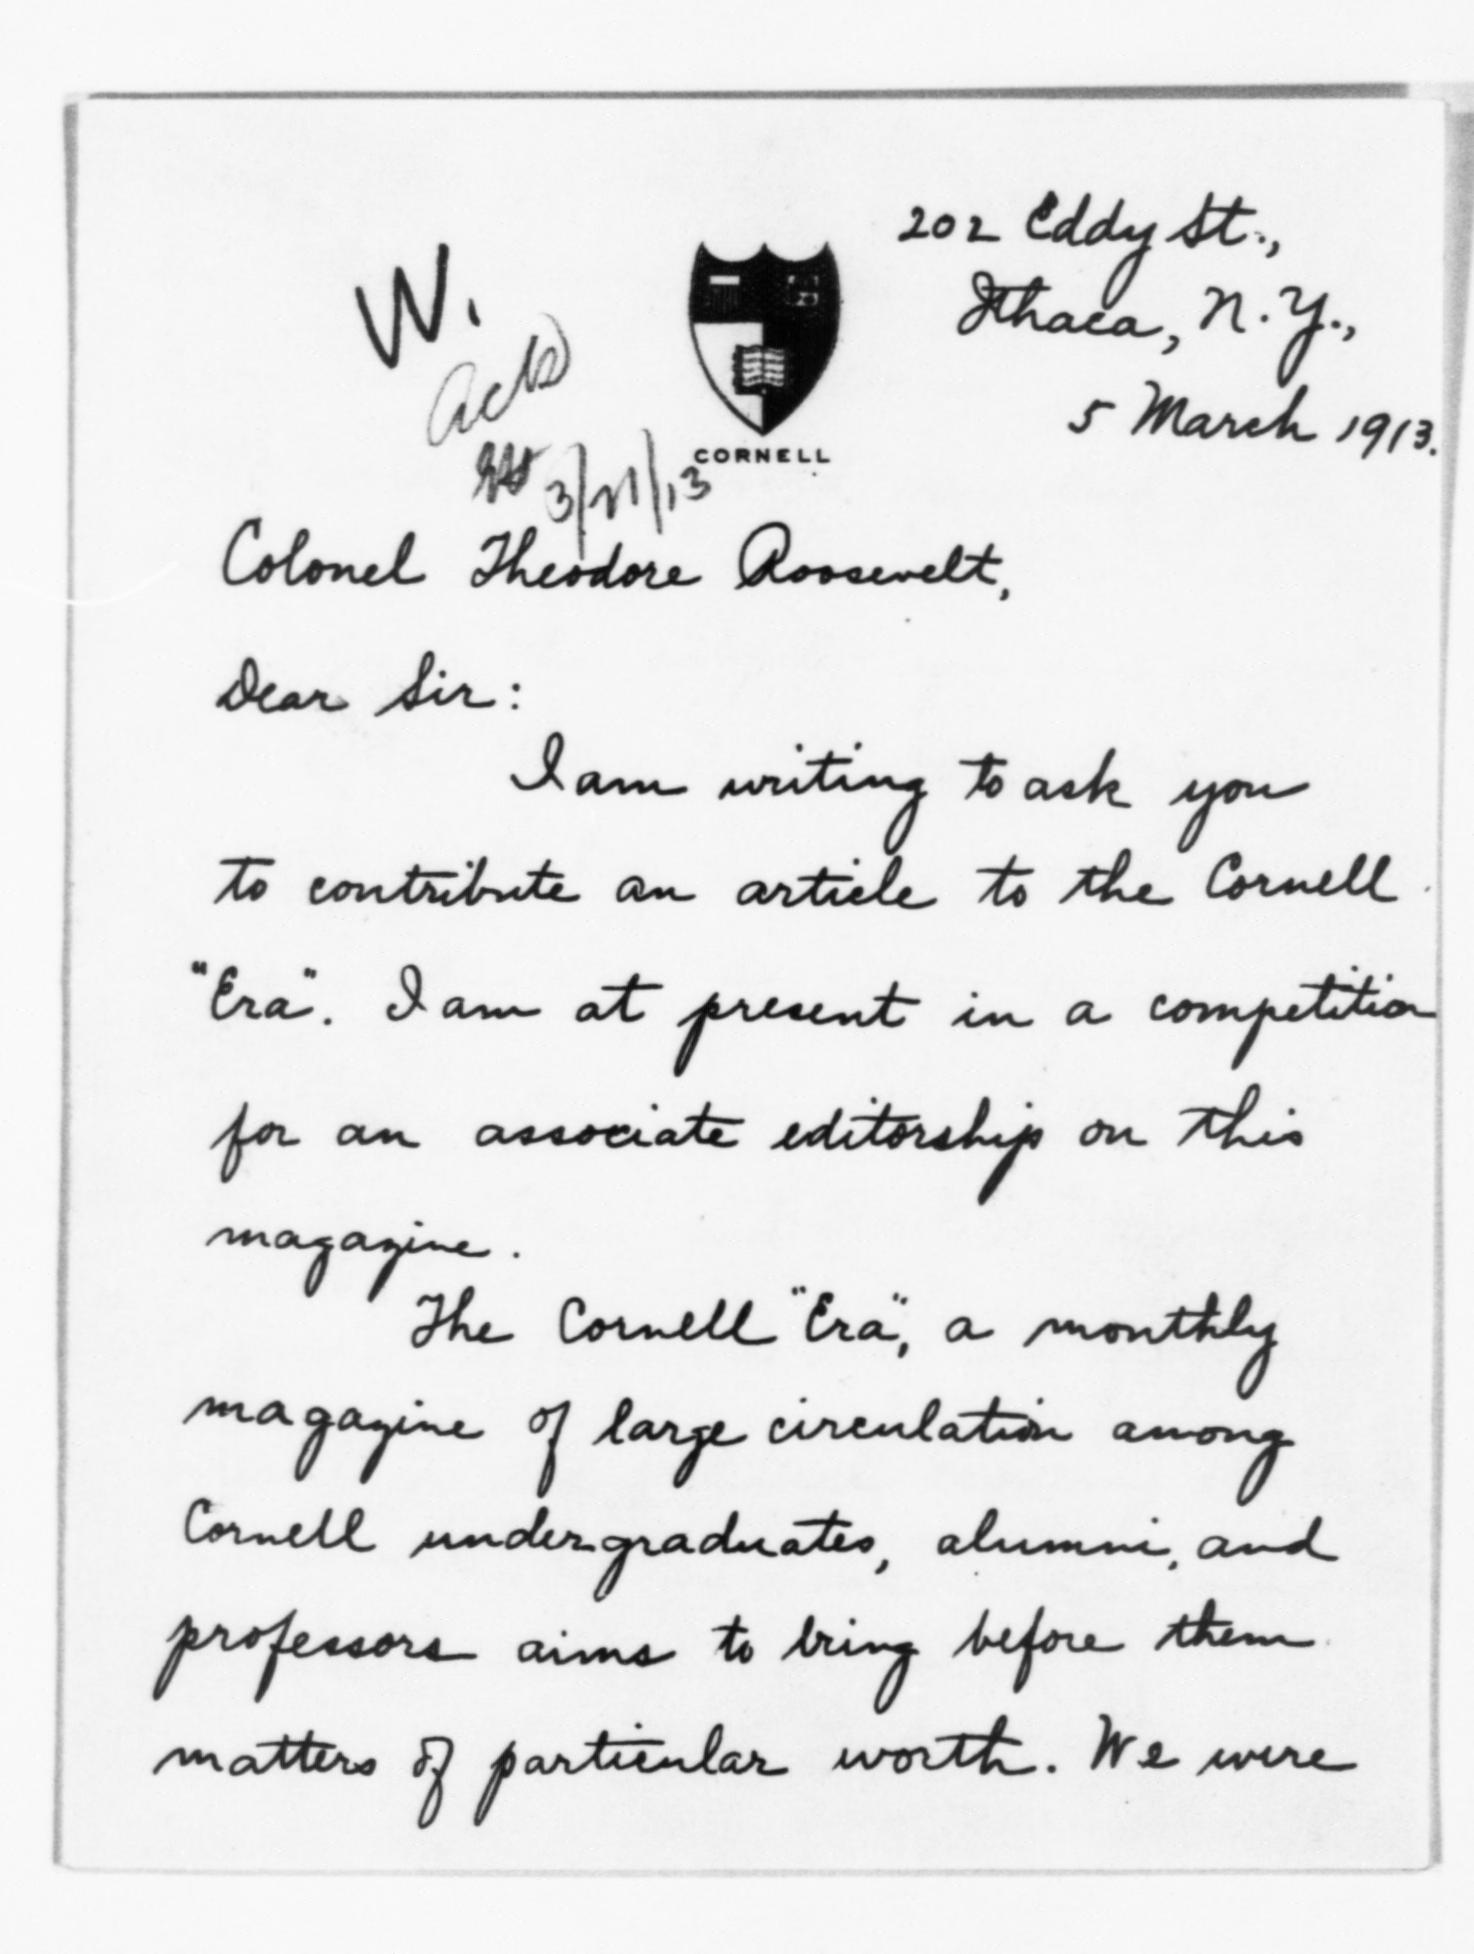 202 Eddy St.,
Ithaca, N.Y.,
5 March 1913.
W.
ackd
3/21/13
CORNELL
Colonel Theodore Roosevelt,
Dear Sir:
I am writing to ask you
to contribute an article to the Cornell
"Era". I am at present in a competition
for an associate editorship on this
magazine.
The Cornell "Era", a monthly
magazine of large circulation among
Cornell undergraduates, alumni, and
professors aims to bring before them
matters of particular worth. We were